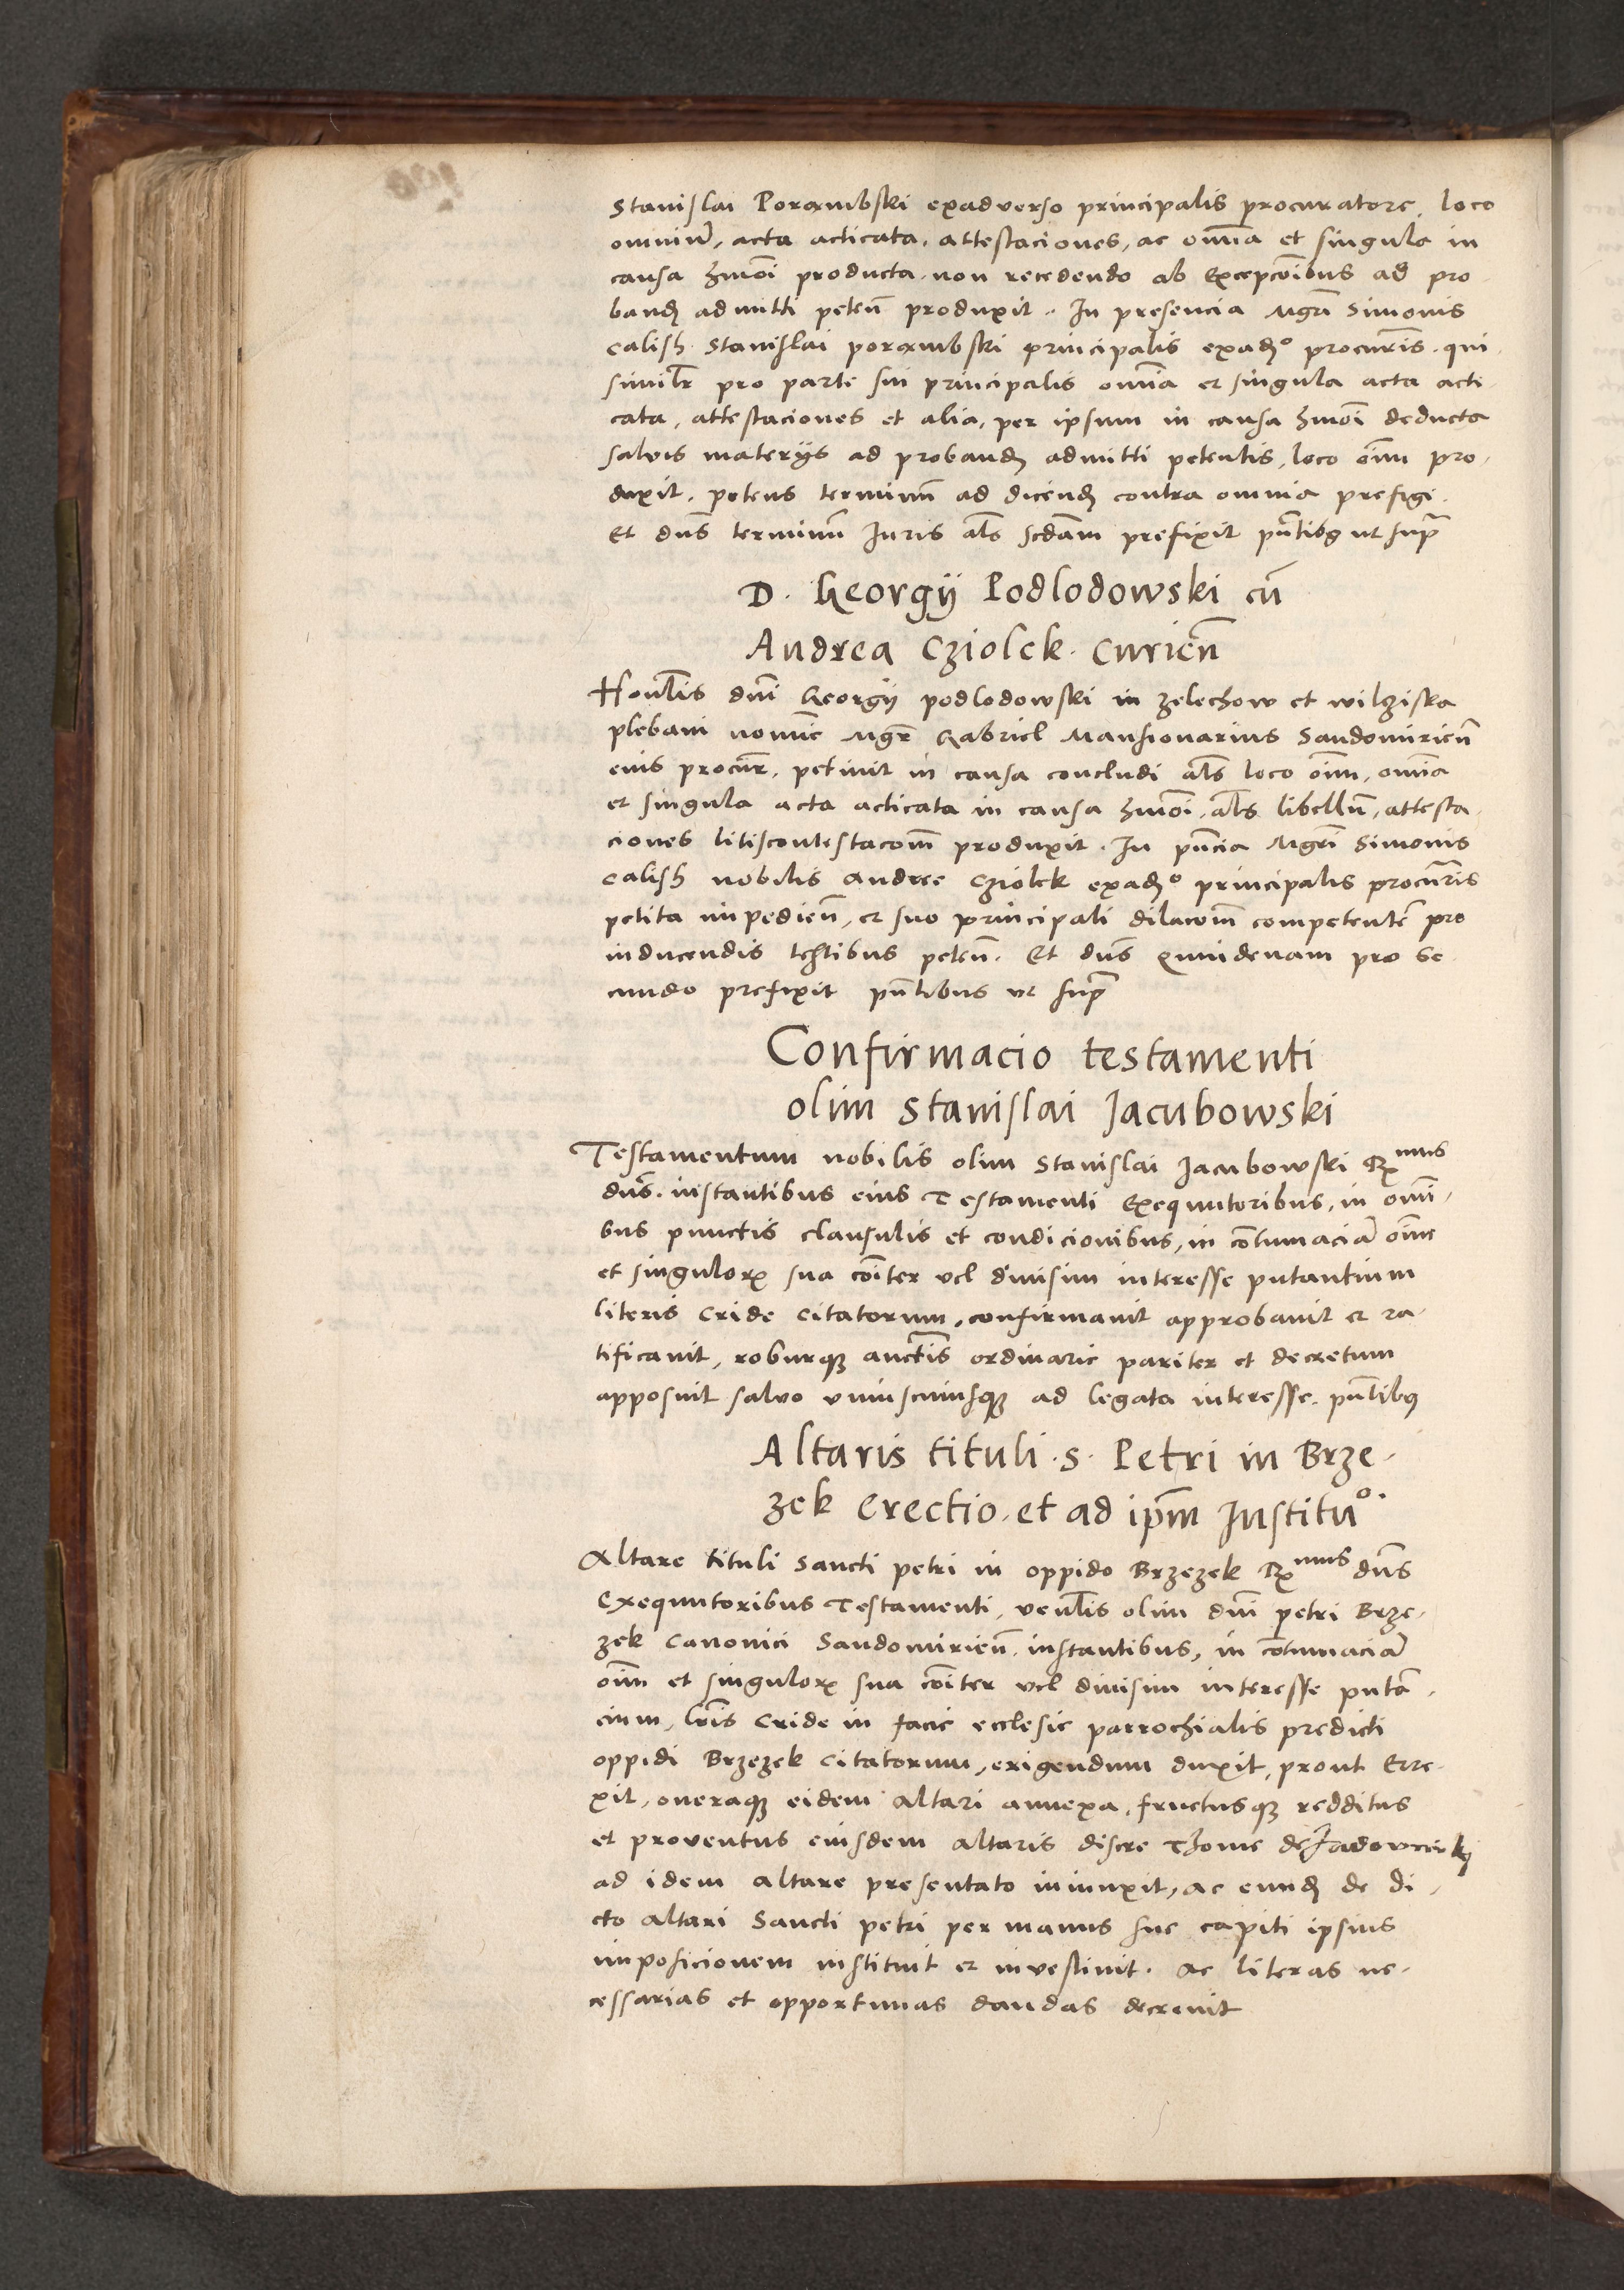 Stanislai Porambski exadverso principalis procuratore, loco
omniū, acta acticata, attestaciones, ac om̄ia et singula in
causa hm̄oi producta, non recedendo ab Excepcōibus ad pro
band admitti peteñ produxit. In presencia Mgrī Simonis
Calish Stanislai porambski principalis exadº procurīs, qui
similr̄ pro parte sui principalis om̄ia et singula acta acti
cata, attestaciones et alia, per ipsum in causa hm̄oi deducta
salvis materijs ad proband admitti petentis, loco oīm pro,
duxit, petens terminū ad dicend contra omnia prefigi.
Et dn̄s terminū Iuris al̄s scdam prefixit pn̄tibs ut sup̄
D. Georgij Podlodowski cū
Andrea Cziolek Curień
Hon̄lis dn̄i Georgij podlodowski in zelechow et wilziska
plebani nomīe Mgr̄ Gabriel Mansionarius Sandomirień
eius procūr, petivit in causa concludi al̄s loco oīm, om̄ia
et singula acta acticata in causa hm̄oi, al̄s libellū, attesta,
ciones litiscontestacoēm produxit. In pn̄cia Mgrī Simonis
Calish nobilis Andree Cziolek exadº principalis procurīs
petita impedień, et suo principali dilacōm competentē pro
inducendis testibus peteñ. Et dn̄s quindenam pro se
cundo prefixit pn̄tibus ut sup̄
Confirmacio testamenti
olim Stanislai Jacubowski
Testamentum nobilis olim Stanislai Jacubowski Rmus
dn̄s, instantibus eius Testamenti Exequutoribus, in om̄i,
bus punctis clausulis et condicionibus, in cōtumaciā oīm
et singulorꝝ sua cōiter vel divisim interesse putantium
literis cride citatorum, confirmavit approbavit et ra,
tificavit, roburqꝫ auctīs ordinarie pariter et decretum
apposuit salvo uniuscuiusqꝫ ad legata interesse. pn̄tibꝰ
Altaris tituli S. Petri in Brze,
zek Erectio, et ad ip̄m Instituº.
Altare tituli Sancti petri in oppido Brzezek Rmus dn̄s
Exequutoribus Testamenti, ven̄lis olim dn̄i petri Brze,
zek Canonici Sandomirień instantibus, in cōtumaciā
oīm et singulorꝝ sua cōiter vel divisim interesse putā,
cium, lr̄is Cride in facie ecclesie parrochialis predicti
oppidi Brzezek Citatorum, erigendum duxit, prout Erre,
xit, oneraqꝫ eidem Altari annexa, fructusqꝫ redditus
et proventus eiusdem altaris discre Thome de
ad idem Altare presentato iniunxit, ac eund de di,
cto altari Sancti petri per manus sue capiti ipsius
imposicionem instituit et investivit. Ac literas ne,
cessarias et opportunas dandas decrevit